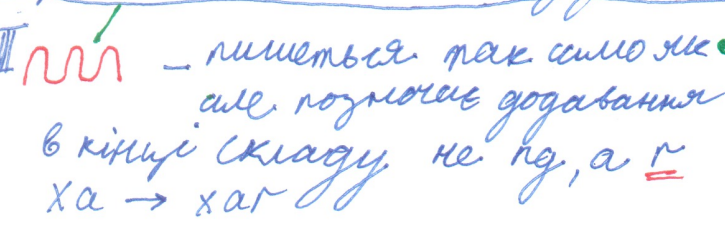 III – пишеться так само як
але позначає додавання
в кінці складу не пд, а г
ха → хаг